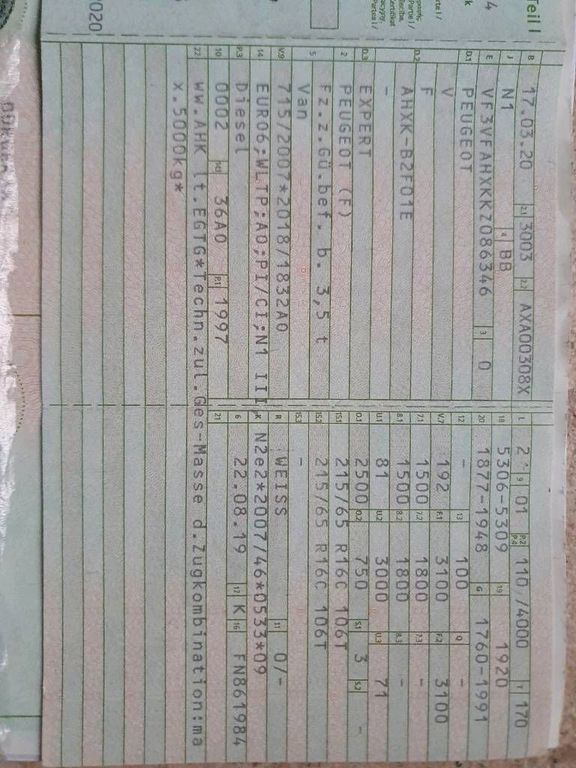 Teil I
B 17.03.20 2.1 3003 2.2 AXA00308X
J N1 4 BB
E VF3VFAHXKKZ086346 3 0
D.1 PEUGEOT
D.2 V
F
AHXK-B2F01E
-
D.3 EXPERT
2 PEUGEOT (F)
5 Fz.z.Gü.bef. b. 3,5 t
Van
V.9 715/2007*2018/1832AO
14 EURO6;WLTP;AO;PI/CI;N1 III
P.3 Diesel
10 0002 14.1 36A0 P.1 1997
L 2 9 01 P.2 P.4 110 /4000 T 170
18 5306-5309 19 1920
20 1877-1948 G 1760-1991
12 - 13 100 Q -
V.7 192 F.1 3100 F.2 3100
7.1 1500 7.2 1800 7.3 -
8.1 1500 8.2 1800 8.3 -
U.1 81 U.2 3000 U.3 71
O.1 2500 O.2 750 S.1 3 S.2 -
15.1 215/65 R16C 106T
15.2 215/65 R16C 106T
15.3 -
R WEISS 11 0/-
K N2e2*2007/46*0533*09
6 22.08.19 17 K 16 FN861984
21
22 ww.AHK lt.EGTG*Techn.zul.Ges-Masse d.Zugkombination:ma
x.5000kg*